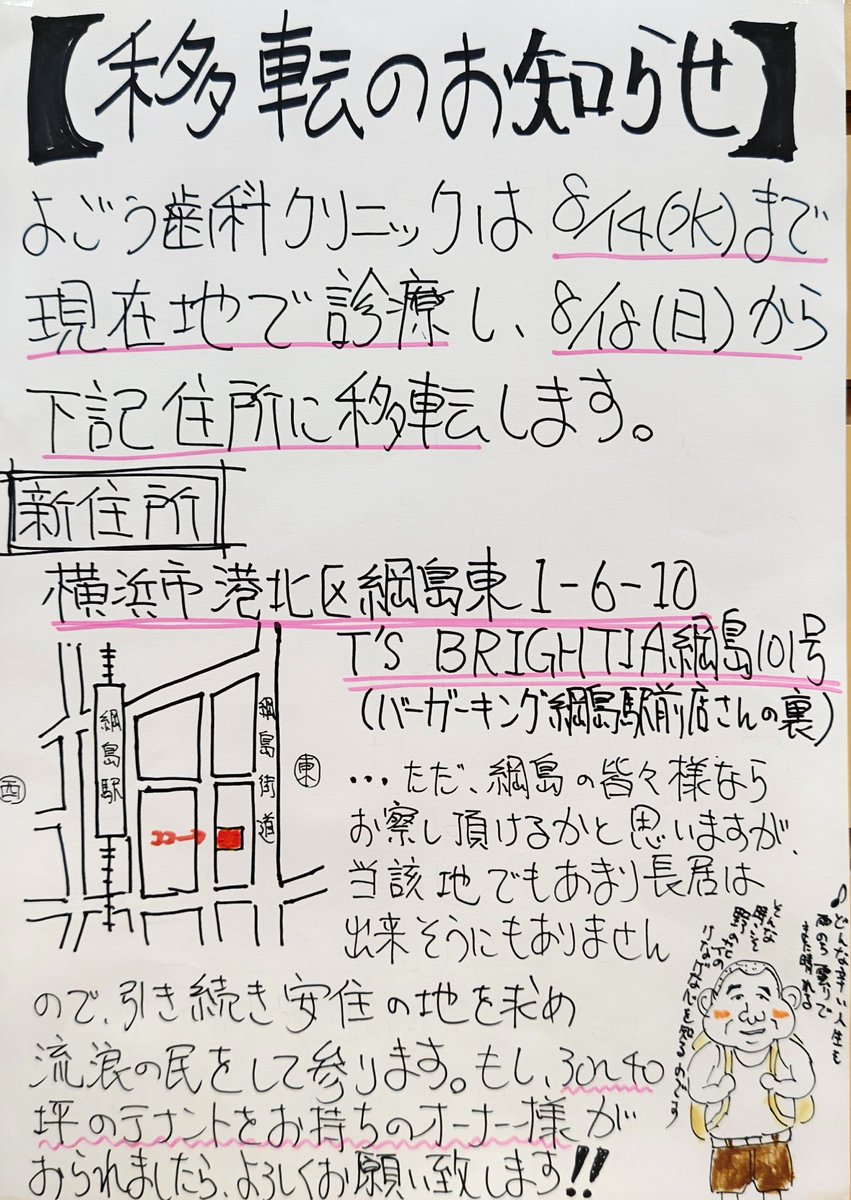 【移転のお知らせ】
よごう歯科クリニックは 8/14(水)まで
現在地で診療し、8/18(日)から
下記住所に移転します。
新住所
横浜市港北区綱島東1-6-10
T'S BRIGHTIA綱島101号
(バーガーキング綱島駅前店さんの裏)
綱島駅
綱島街道
西
東
ココ→
…ただ、綱島の皆々様なら
お察し頂けるかと思いますが、
当該地でもあまり長居は
出来そうにもありません
ので、引き続き安住の地を求め
流浪の民をして参ります。もし、30~40
坪のテナントをお持ちのオーナー様が
おられましたら、よろしくお願い致します!!
♪どんな辛い人生も